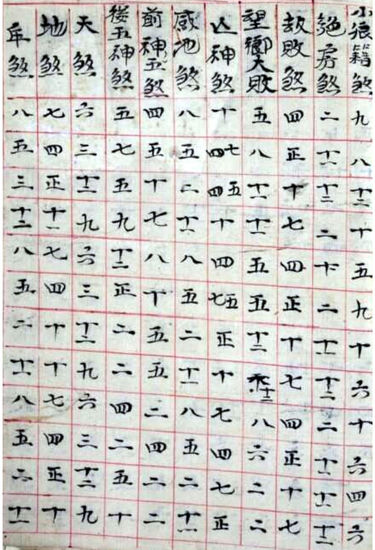 小狼籍煞九八十二十五九十六十六四六
絕房煞二十一十二二十二十一十二二十十一十二
敗煞四正十七四正十七四正十七
望鄉大敗五八十一十一五五十二十二八六二二
亡神煞十四七四五十四七五正十七四七正
咸池煞八五二十一八五二十一八五二十一
前神五煞四五十七八十五五二四二二
後五神煞五七五九十一正二二四二五十
天煞六三十二九六三十二九六三十二九
地煞七四正十一七四十十七四正十
年煞八五三十二八五二十一八五二十一